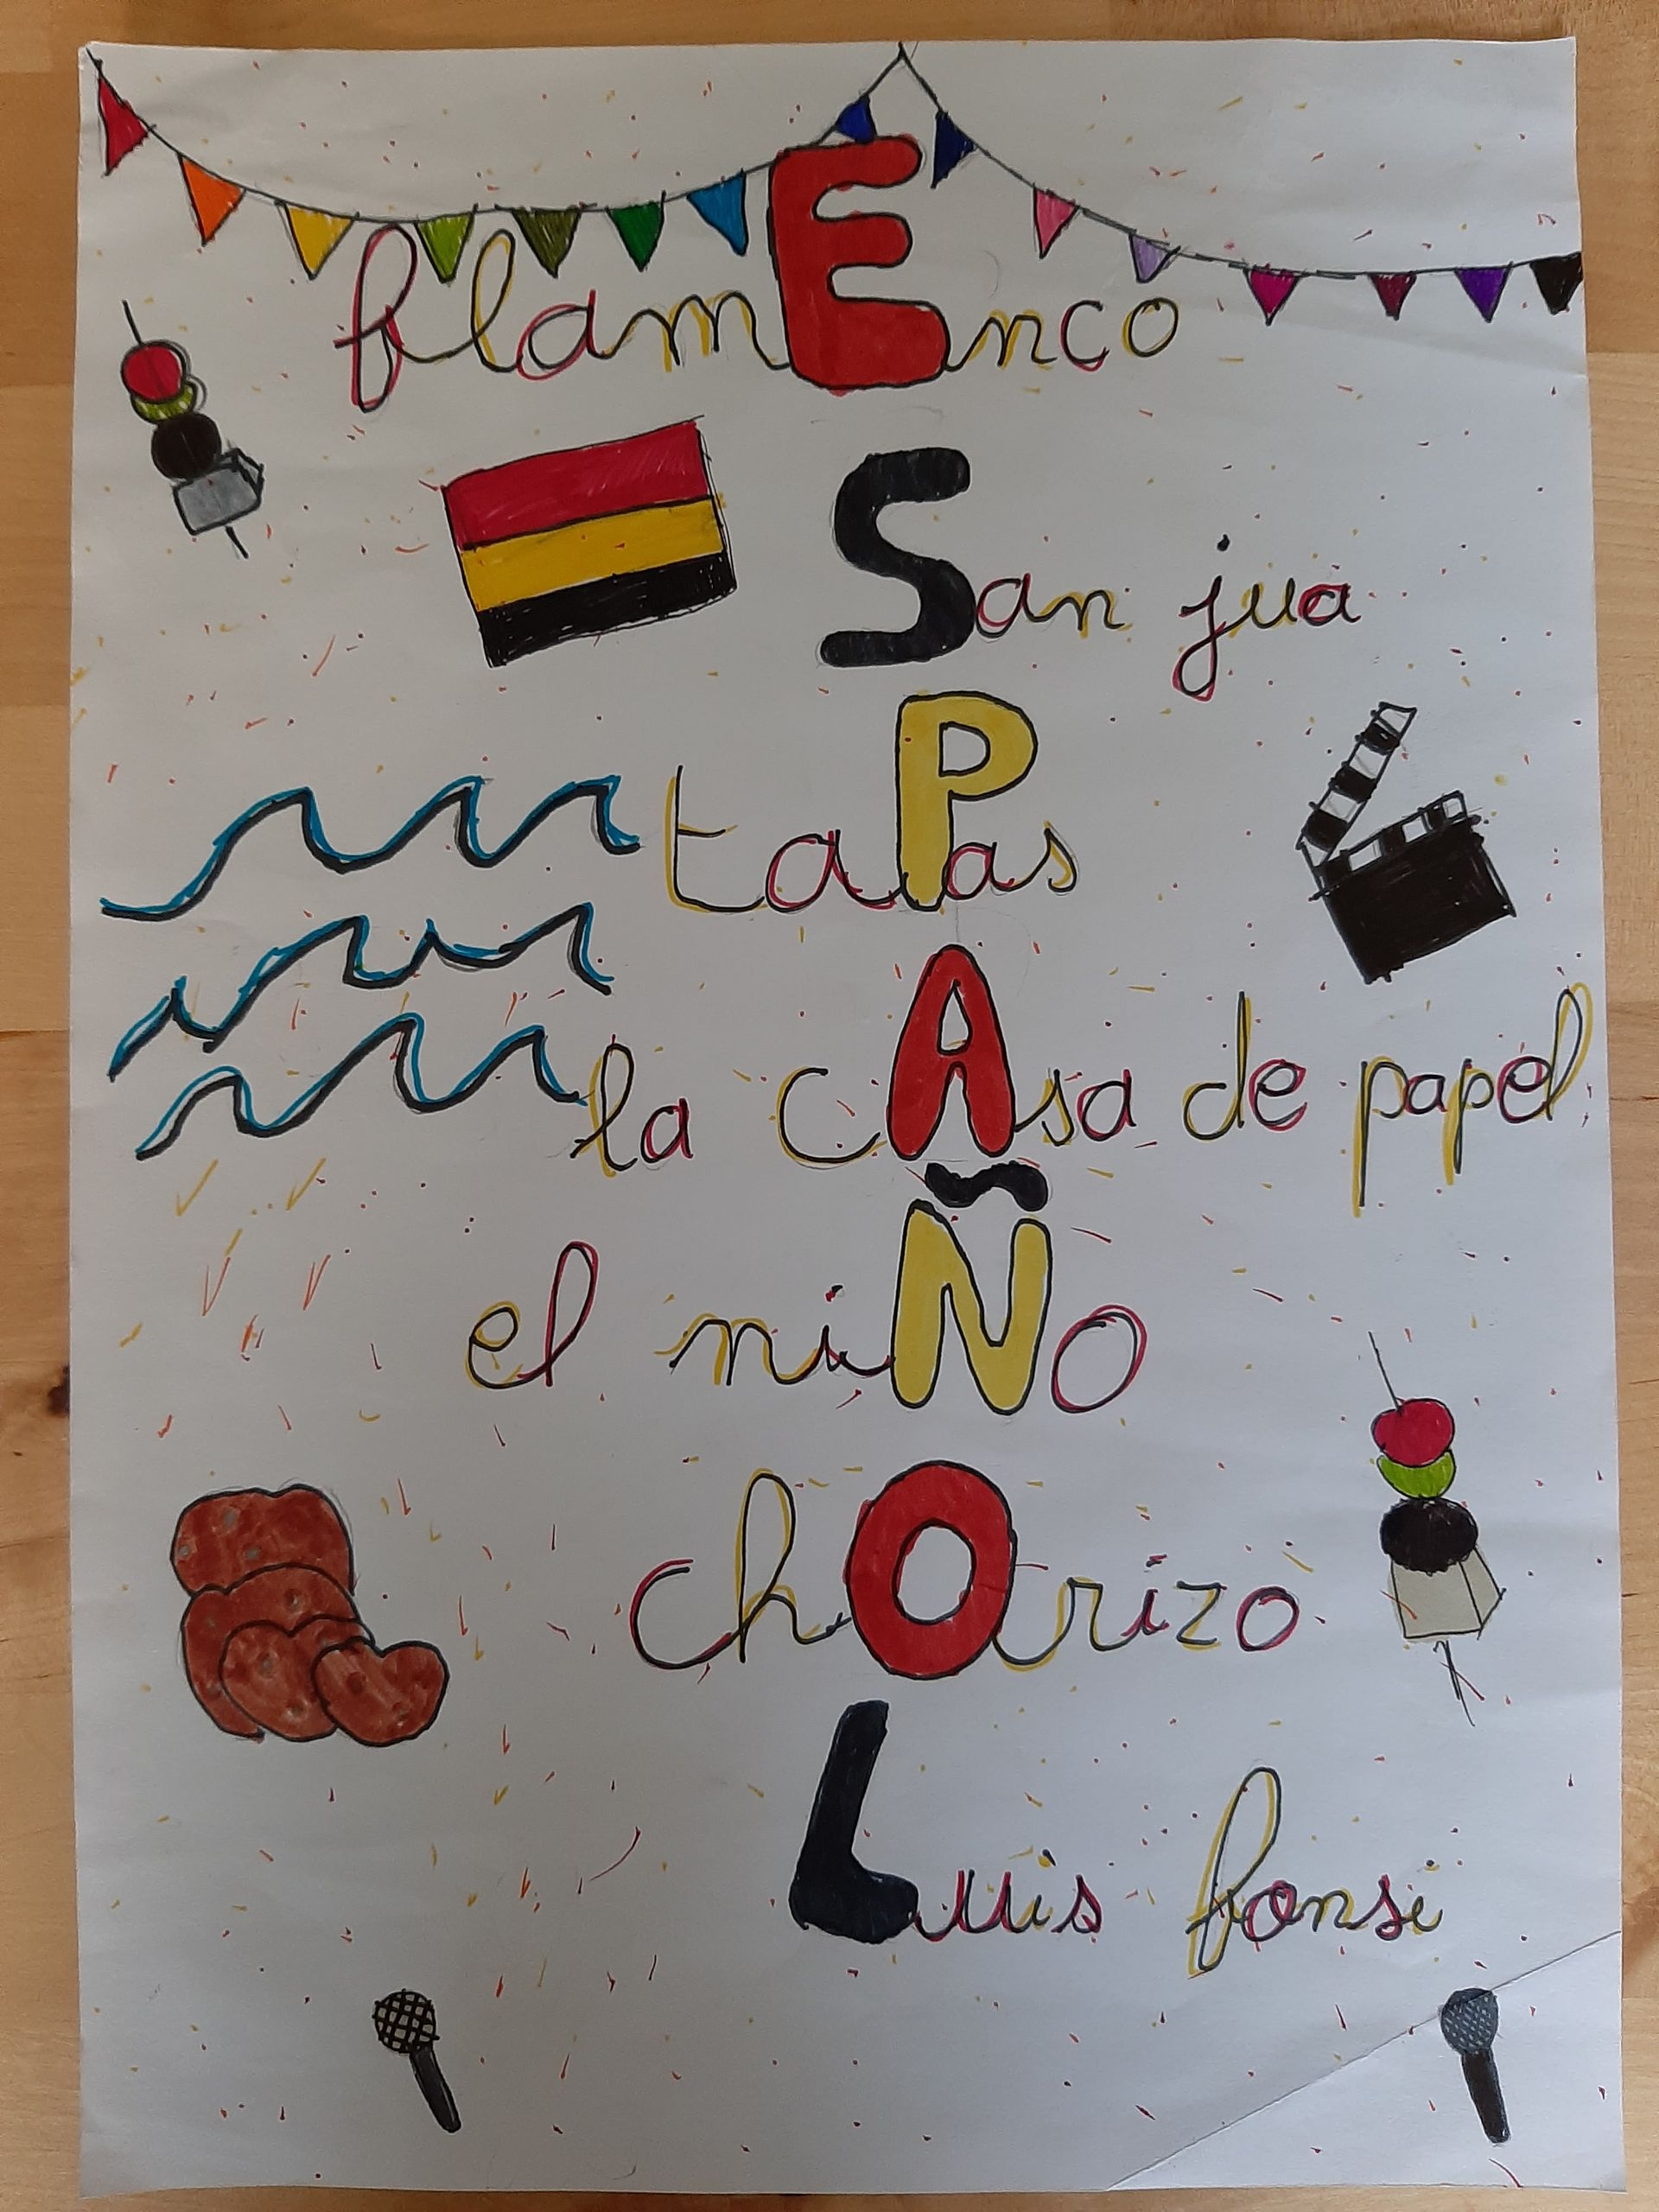 flamEnco
San jua
taPas
la cAsa de papel
el niÑo
chOrizo
Luis fonsi